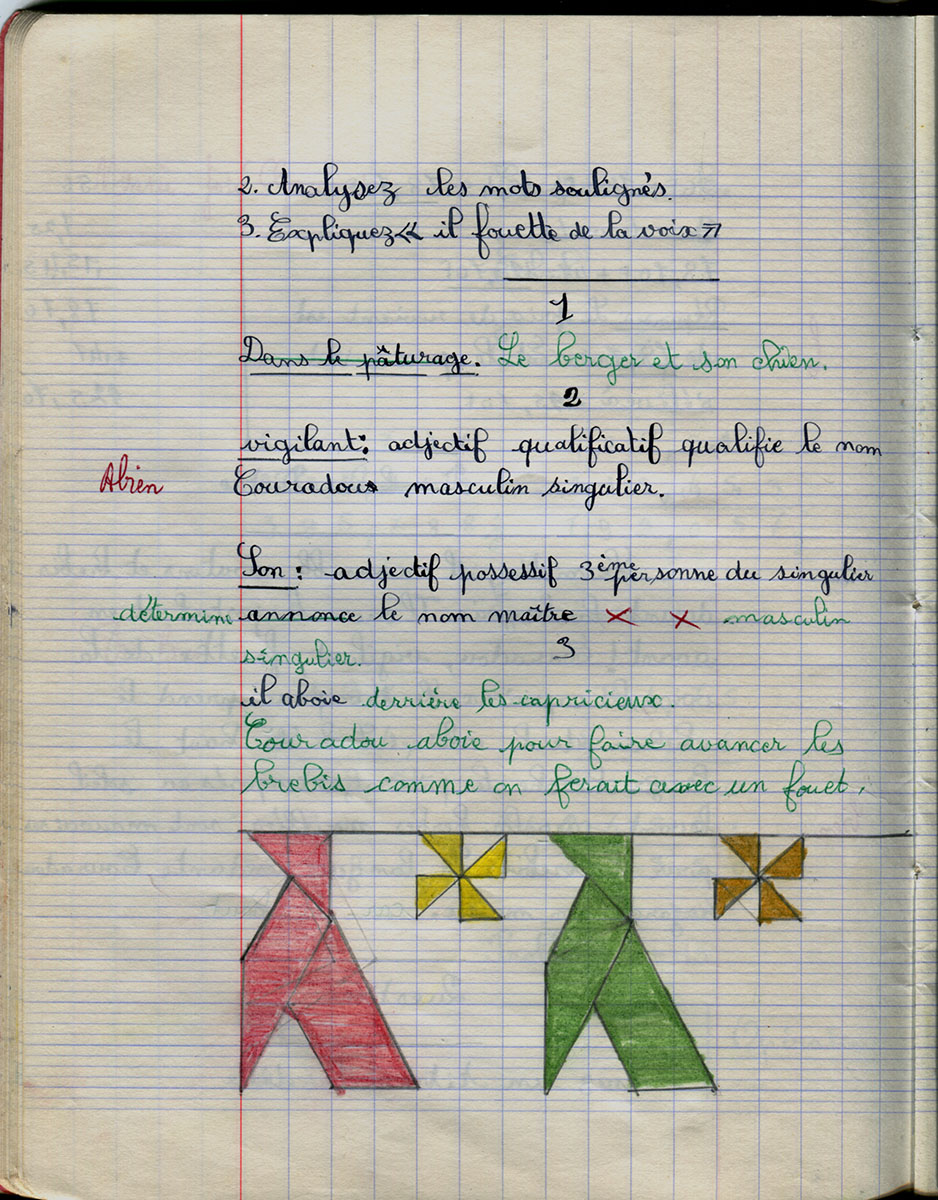 2. Analysez les mots soulignés.
3. Expliquez « il fouette de la voix »
1
Dans le pâturage. Le berger et son chien.
2
vigilant: adjectif qualificatif qualifie le nom
Abien
Couradou masculin singulier.
Son: adjectif possessif 3ème personne du singulier
détermine annonce le nom maître × × masculin
singulier. 3
il aboie derrière les capricieux.
Couradou aboie pour faire avancer les
brebis comme on ferait avec un fouet.